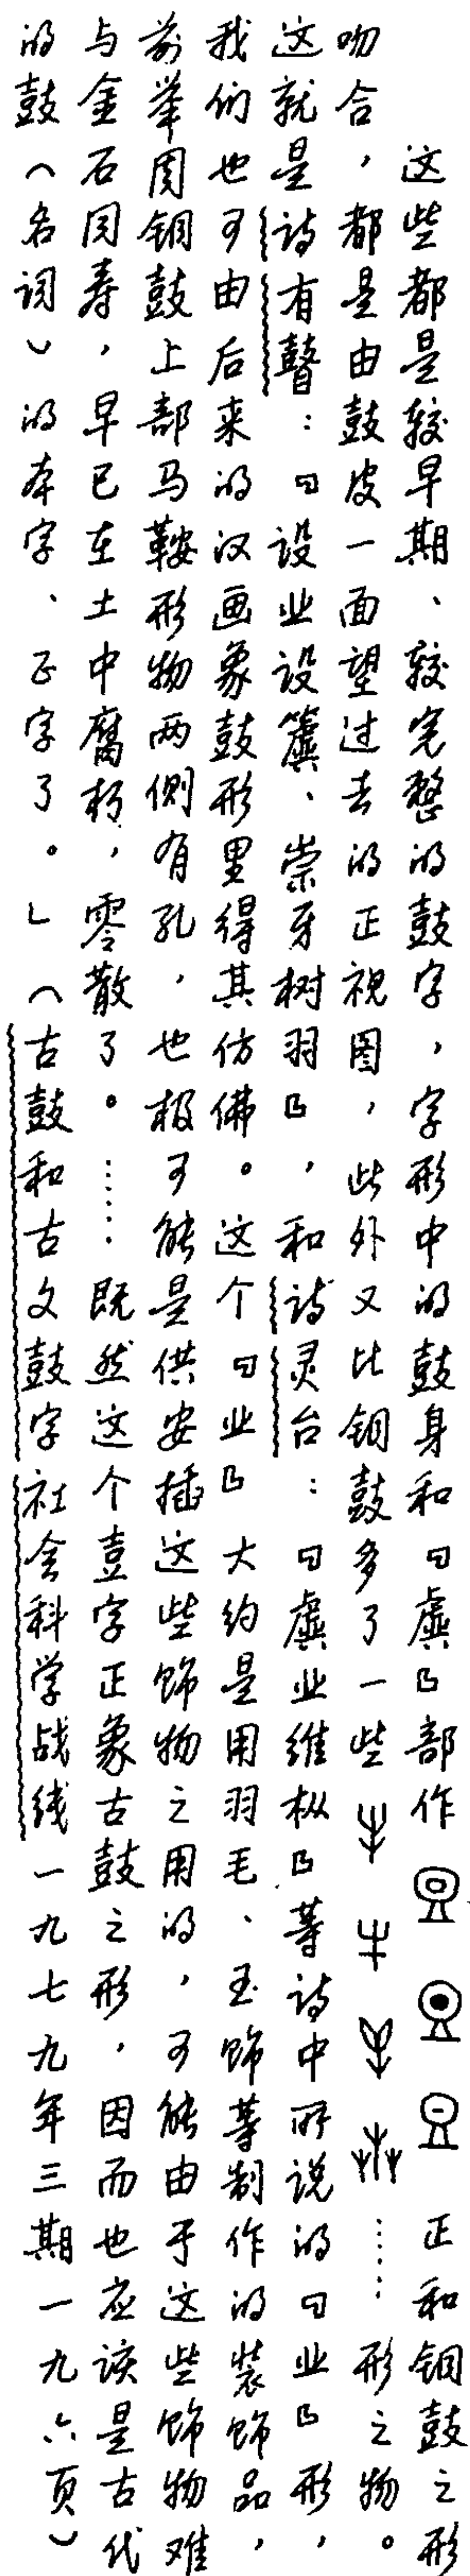 这些都是较早期、较完整的鼓字，字形中的鼓身和『虡』部作正和铜鼓之形
吻合，都是由鼓皮一面望过去的正视图，此外又比铜鼓多了一些……形之物。
这就是诗有瞽：『设业设簴、崇牙树羽』，和诗灵台：『虡业维枞』等诗中所说的『业』形，
我们也可由后来的汉画象鼓形里得其仿佛。这个『业』大约是用羽毛、玉饰等制作的装饰品，
前举周铜鼓上部马鞍形物两侧有孔，也极可能是供安插这些饰物之用的，可能由于这些饰物难
与金石同寿，早已在土中腐朽，零散了。……既然这个壴字正象古鼓之形，因而也应该是古代
的鼓（名词）的本字、正字了。」（古鼓和古文鼓字社会科学战线一九七九年三期一九六页）